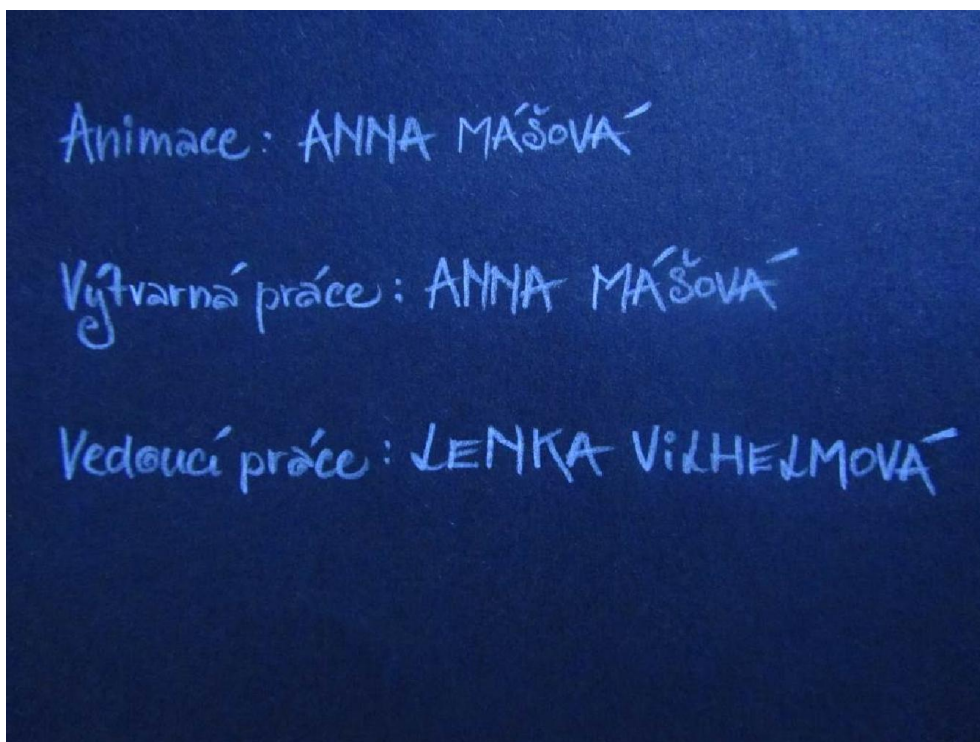 Animace: ANNA MÁŠOVÁ
Výtvarná práce: ANNA MÁŠOVÁ
Vedoucí práce: LENKA ViLHELMOVÁ